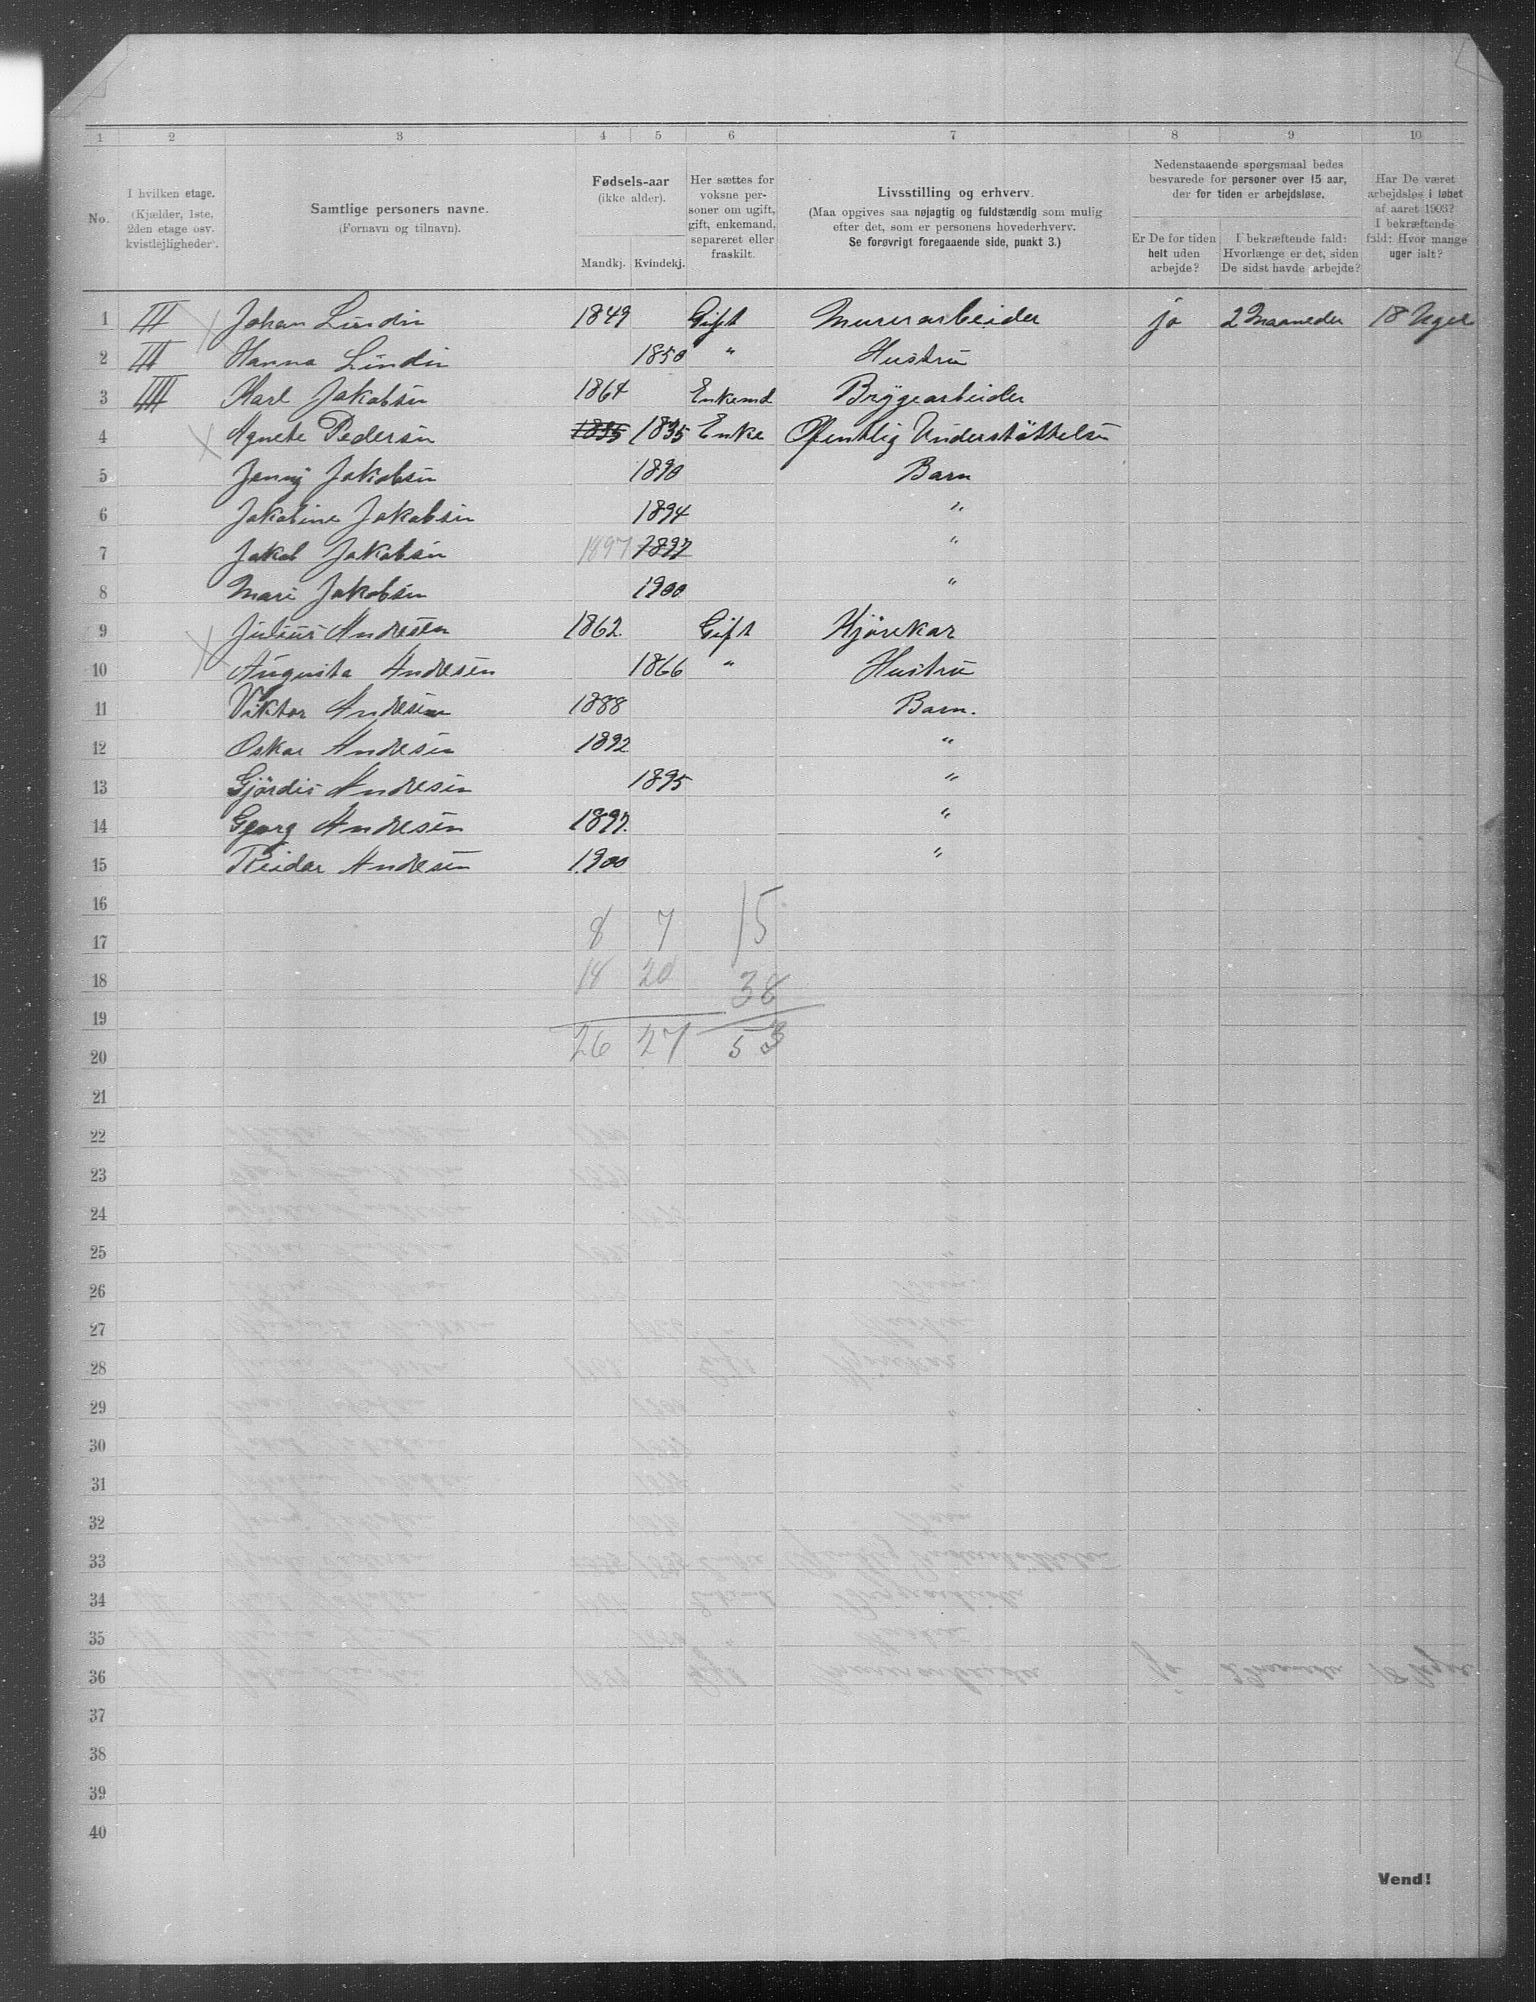 1 2 3 4 5 6 7 8 9 10
No.
I hvilken etage.
(Kjælder, 1ste,
2den etage osv.
kvistlejligheder).
Samtlige personers navne.
(Fornavn og tilnavn).
Fødsels-aar
(ikke alder).
Mandkj. Kvindekj.
Her sættes for
voksne per-
soner om ugift,
gift, enkemand,
separeret eller
fraskilt.
Livsstilling og erhverv.
(Maa opgives saa nøjagtig og fuldstændig som mulig
efter det, som er personens hovederhverv.
Se forøvrigt foregaaende side, punkt 3.)
Nedenstaaende spørgsmaal bedes
besvarede for personer over 15 aar,
der for tiden er arbejdsløse.
Er De for tiden
helt uden
arbejde?
I bekræftende fald:
Hvorlænge er det, siden
De sidst havde arbejde?
Har De været
arbejdsløs i løbet
af aaret 1903?
I bekræftende
fald: Hvor mange
uger ialt?
1 III Johan Lundin 1849 Gift Murerarbeider ja 2 Maaneder 18 Uger
2 III Hanna Lundin 1850 " Hustru
3 IIII Karl Jakobsen 1864 Enkemd Brygearbeider
4 Agnete Pedersen 1835 1835 Enke Ofentlig Understøttelse
5 Jenny Jakobsen 1890 Barn
6 Jakobine Jakobsen 1894 "
7 Jakob Jakobsen 1897 1897 "
8 Mari Jakobsen 1900 "
9 Julius Andresen 1862 Gift Kjørekar
10 Augusta Andresen 1866 " Hustru
11 Viktor Andresen 1888 Barn.
12 Oskar Andresen 1892 "
13 Gjørdis Andresen 1895 "
14 Georg Andresen 1897. "
15 Reidar Andresen 1900 "
16
17 8 7 15
18 18 20 38
19
20 26 27 53
21
22
23
24
25
26
27
28
29
30
31
32
33
34
35
36
37
38
39
40
Vend!